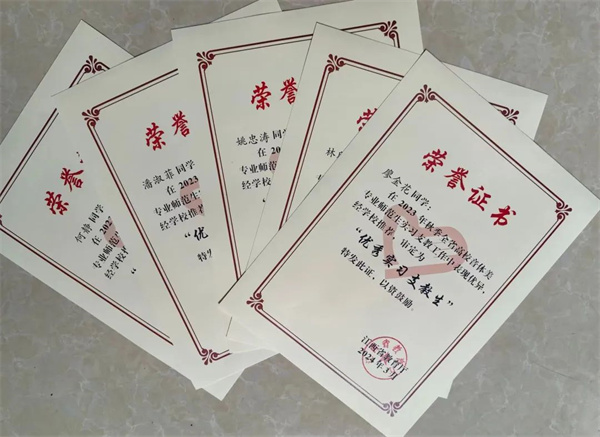 荣誉
何静同学
在2023
专业师范生
经学校推
荣誉
潘淑菲同学
在2023
专业师范生
经学校推荐
“优
特
荣誉
姚忠涛同学
在202
专业师范
经学校
荣
林
荣誉证书
廖金花同学:
在2023年秋季全省高校音体美
专业师范生实习支教工作中表现优异,
经学校推荐、审定为
“优秀实习支教生”
特发此证,以资鼓励。
江西省教育厅
2024年3月